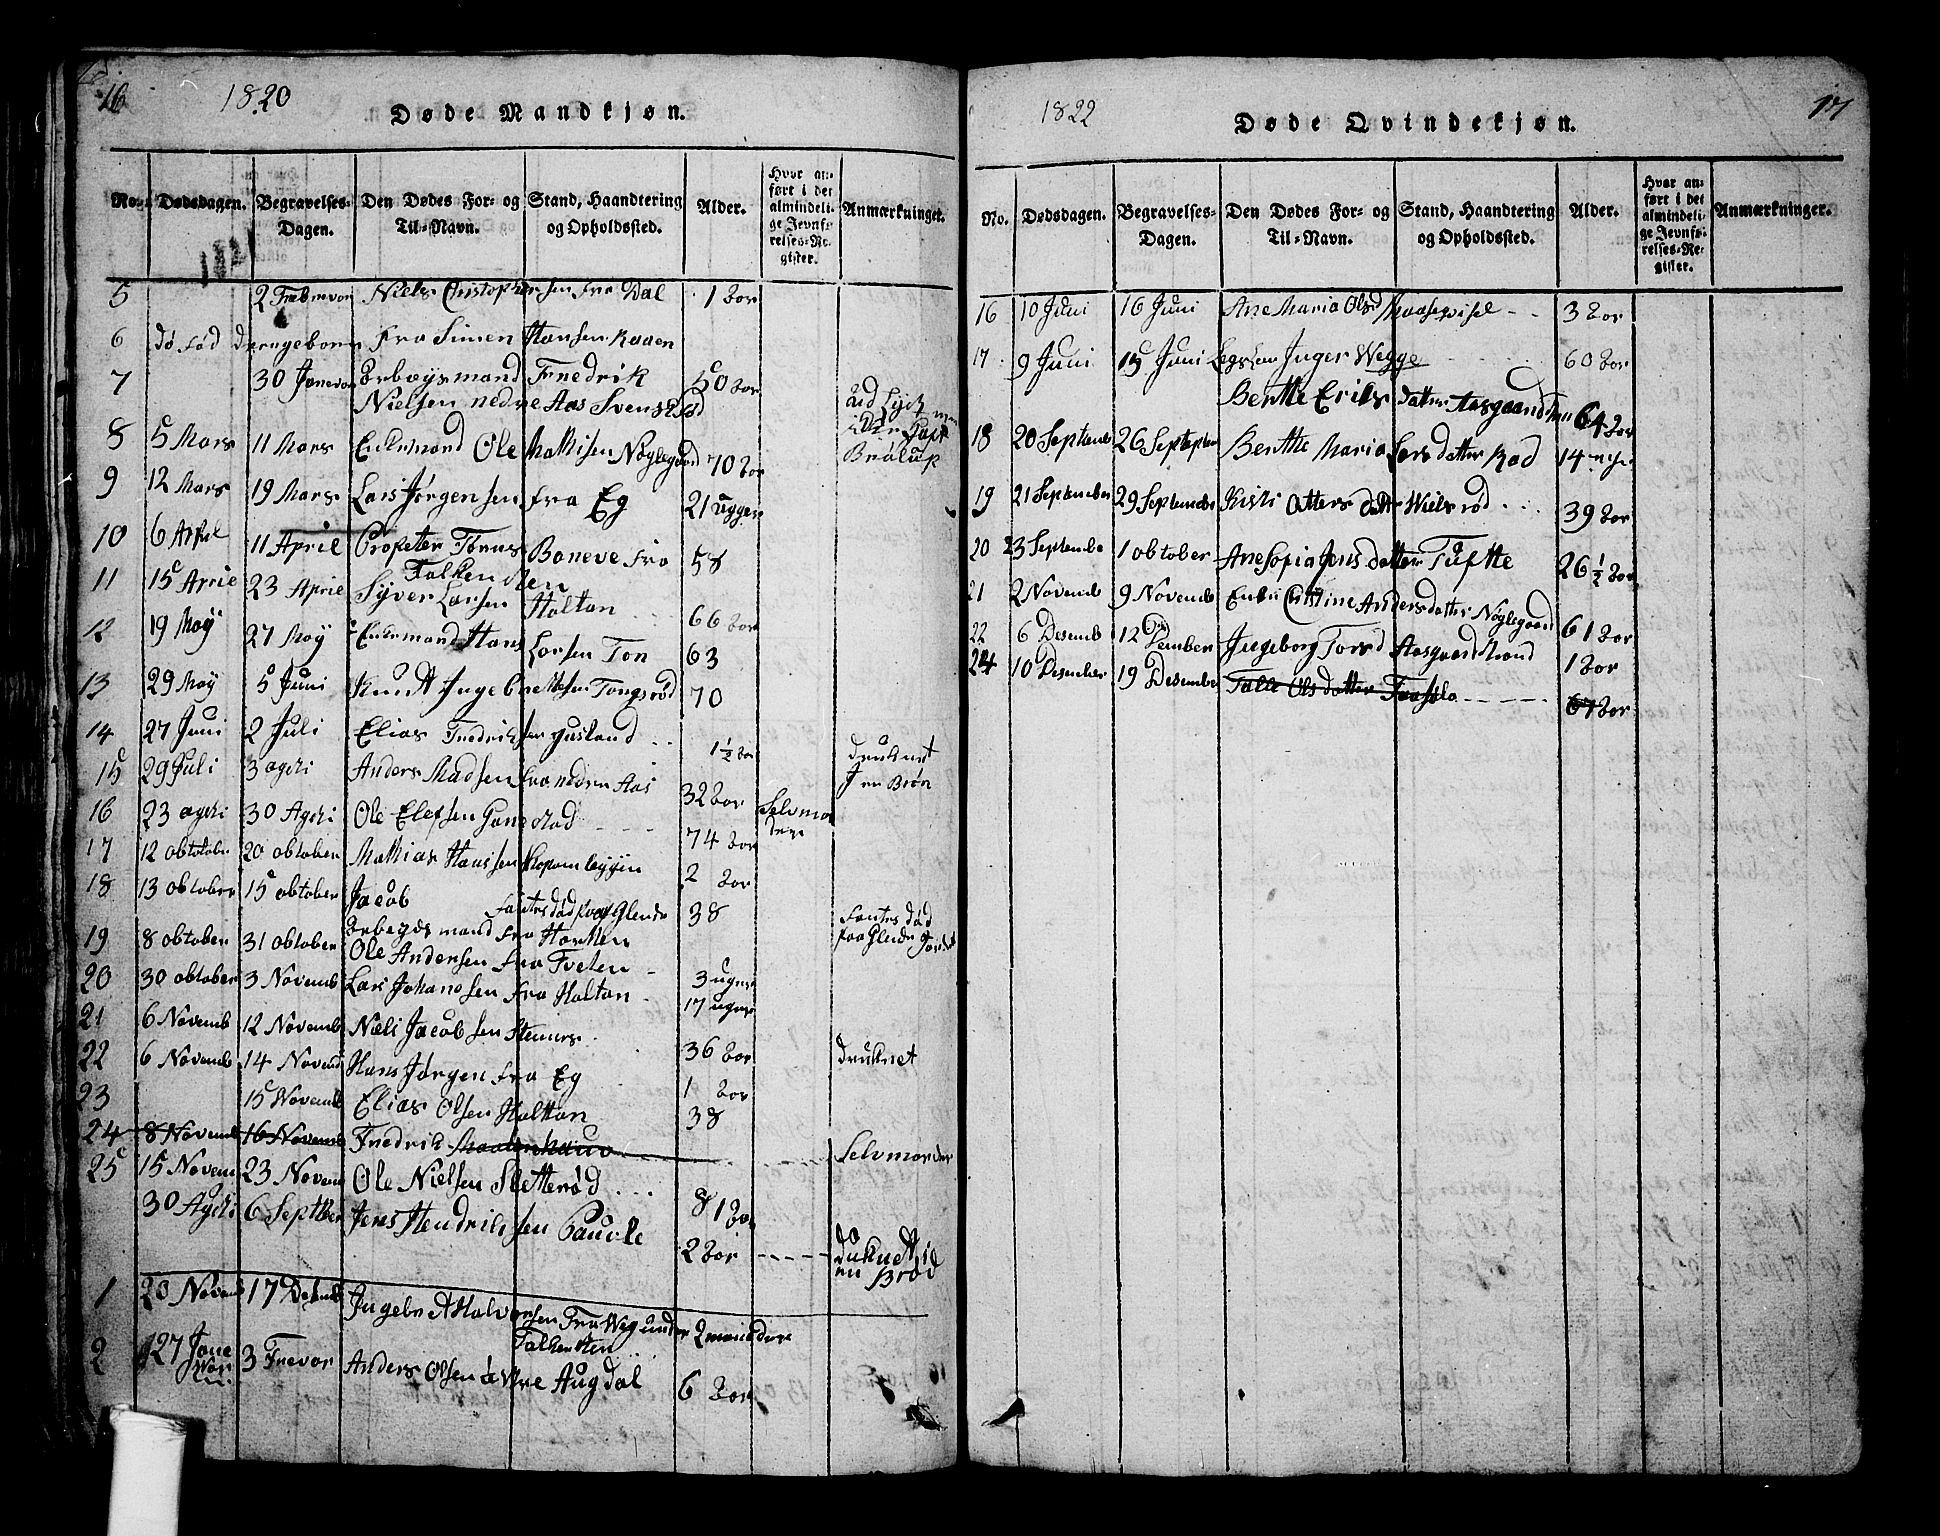 16
1820
Døde Mandkjøn.
No. Dødsdagen. Begravelses-Dagen. Den Dødes For- og Til-Navn. Stand, Haandtering og Opholdssted. Alder. Hvor anført i det almindelige Jevnførelses-Register. Anmærkninger.
5 2 Febrevor Niels Cristophersen fra Dal 1 Aor
6 dø Fød drengebonn fra Simen Hansen Kaaen
7 30 Janevor Erbeysmand Fredrik 50 Aor
Nielsen nedre Aas Svenskfød
8 5 Mars 11 Mars Enkemand Ole Mattisen Nøglegaard 70 Aor
9 12 Mars 19 Mars Lars Jørgensen fra Eg 21 Ugger
10 6 April 11 April Propeter Tønnes Boneve fra 58
Falkensten
11 15 Aprie 23 Aprie Syver Larsen Holtan 66 Aor
12 19 Moÿ 27 Moÿ Enkemand Hans Larsen Ton 63
13 29 Moÿ 5 Juni Knudt Ingebrettsen Tongsrød 70
14 27 Juni 2 Juli Elias Fredriksen gusland 1½ Aor druknet
15 29 Juli 3 agsti Anders Madsen fra nedre Aas 32 Aor J en Brøn
16 23 agsti 30 Agsti Ole Elefsen Gonestad 74 Aor Selvmordere
17 12 obtober 20 obtober Mattias Hansen Skopomleggen 2 Aor
18 13 obtober 15 obtober Jacob 38 fantes død paa Glende Jordet
Erbeydsmand fra Hortten
19 8 obtober 31 obtober Ole Andersen fra Tveten 3 uger
20 30 obtober 3 Novemb Lars Johansen fra Holtan 17 uger
21 6 Novemb 12 Novemb Niels Jacobsen Steners 36 Aor druknet
22 6 Novemb 14 Novemb Hans Jørgen fra Eg 1 Aor
23 15 Novemb Elias Olsen Holtan 38
24 8 Novemb 16 Novemb Fredrik Selvmorder
25 15 Novem 23 Novem Ole Nielsen Sletterød 81 Aor
30 Agsti 6 Septber Jens Hendriksen Pauvle 2 Aor druknett i en Brød
1 20 Novem 17 Desemb Ingebret Halvorsen Fra Weg under 2 maneder
Falkensten
2 27 Jane 3 Frevor Anders Olsen øvre Augdal 6 Aor
17
1822
Døde Qvindekjøn.
No. Dødsdagen. Begravelses-Dagen. Den Dødes For- og Til-Navn. Stand, Haandtering og Opholdssted. Alder. Hvor anført i det almindelige Jevnførelses-Register. Anmærkninger.
16 10 Juni 16 Juni Ane Maria Olsd 3 Aor
17 9 Juni 15 Juni Inger Wegge 60 Aor
Berthe Eriksdatter Aasgaardstran 64 Aor
18 20 Septemb 26 Septemb Berthe Maria Larsdatter Rød 14
19 21 September 29 September Kisti Ottersdatter Wielsrød 39 Aor
20 23 Septembe 1 obtober Ane Sofia Jonsdatter Tufte 26½ Aor
21 2 Novemb 9 Novemb Enke Cristine Andersdatter Nøglegaard 61 Aor
22 6 Desemb 12 Desember Ingeborg Torsd Aasgaardstrand 1 Aor
24 10 Desember 19 Desembe Talle Olsdatter 67 Aor